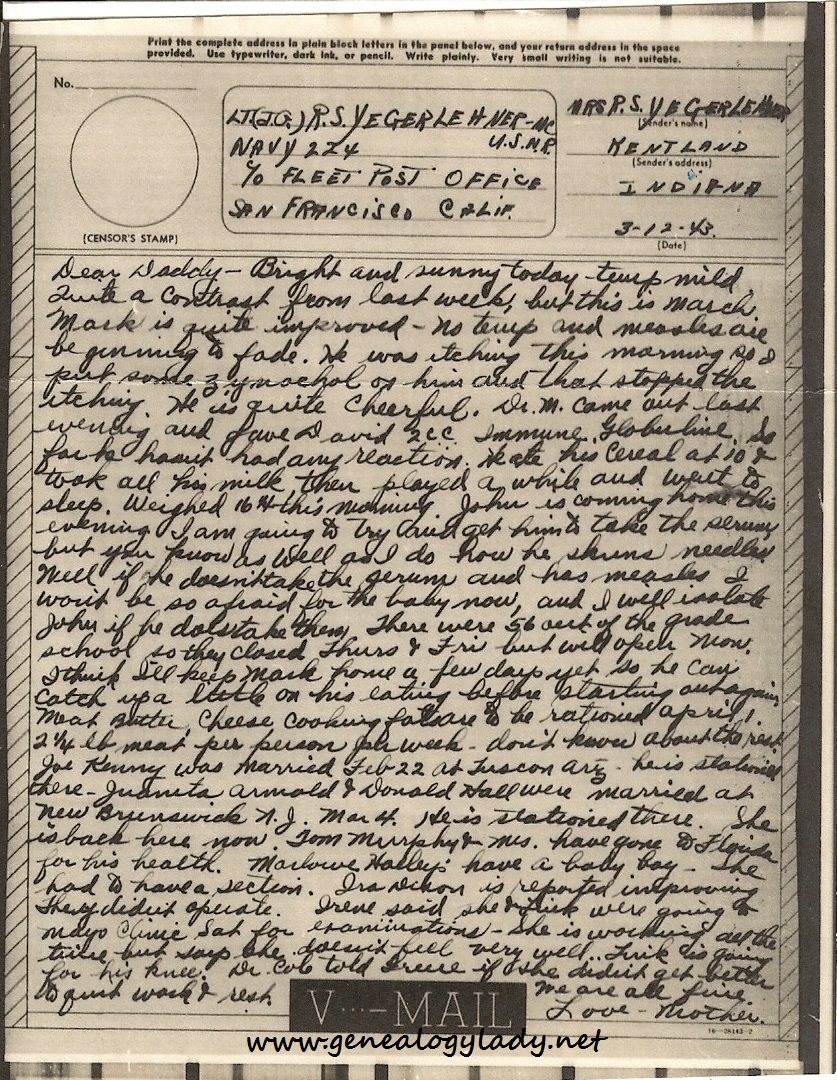 Print the complete address in plain block letters in the panel below, and your return address in the space
provided. Use typewriter, dark ink, or pencil. Write plainly. Very small writing is not suitable.
No.
LT(J.G.) R.S. YEGERLEHNER-MC
U.S.N.R.
NAVY 224
℅ FLEET POST OFFICE
SAN FRANCISCO CALIF.
(CENSOR'S STAMP)
MRS R.S. YEGERLEHNER
(Sender's name)
KENTLAND
(Sender's address)
INDIANA
3-12-43.
(Date)
Dear Daddy - Bright and sunny today - temp mild.
Quite a contrast from last week, but this is March.
Mark is quite improved - no temp and measles are
beginning to fade. He was itching this morning so I
put some zynochol on him and that stopped the
itching. He is quite cheerful. Dr. M. came out last
evening and gave David 2cc Immune Globuline. So
far he hasn't had any reaction. He ate his cereal at 10 &
took all his milk then played a while and went to
sleep. Weighed 16# this morning. John is coming home this
evening I am going to try and get him to take the serum
but you know as well as I do how he shuns needles.
Well if he doesn't take the serum and has measles I
won't be so afraid for the baby now, and I will isolate
John if he does take them. There were 56 out of the grade
school so they closed Thurs & Fri but will open Mon.
I think I'll keep Mark home a few days yet so he can
catch up a little on his eating before starting out again.
Meat Butter, Cheese cooking fats are to be rationed april 1.
2 1/4 lb meat per person per week - don't know about the rest.
Joe Kenny was married Feb 22 at Tuscon Ariz - he is stationed
there - Juanita Armold & Donald Hall were married at
New Brunswick N.J. Mar 4. He is stationed there. She
is back here now. Tom Murphy & Mrs. have gone to Florida
for his health. Marlowe Halley's have a baby boy - She
had to have a section. Ira Dixon is reported improving
They didn't operate. Irene said she & Turk were going to
Mayo Clinic Sat for examinations - She is working all the
time but says she doesn't feel very well. Turk is going
for his knee. Dr. Cole told Irene if she didn't get better
to quit work & rest.
We are all fine.
Love - Mother.
V···—MAIL
16-28143-2
www.genealogylady.net